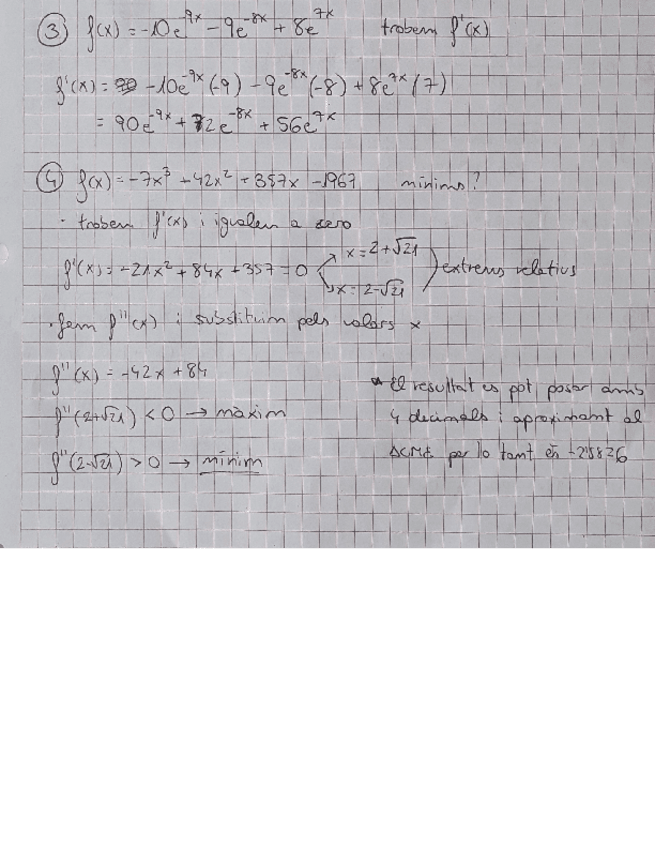 ③ f(x) = -10e^-9x - 9e^-8x + 8e^7x trobem f'(x)
f'(x) = -10e^-9x (-9) - 9e^-8x (-8) + 8e^7x (7)
= 90e^-9x + 72e^-8x + 56e^7x
④ f(x) = -7x³ + 42x² + 357x - 1967 mínims?
· trobem f'(x) i igualem a zero
f'(x) = -21x² + 84x + 357 = 0 x = 2+√21 extrems relatius
x = 2-√21
· fem f''(x) i substituim pels valors x
f''(x) = -42x + 84
f''(2+√21) < 0 → màxim
f''(2-√21) > 0 → mínim
* El resultat es pot posar amb
4 decimals i aproximant al
per lo tant és -2'5826